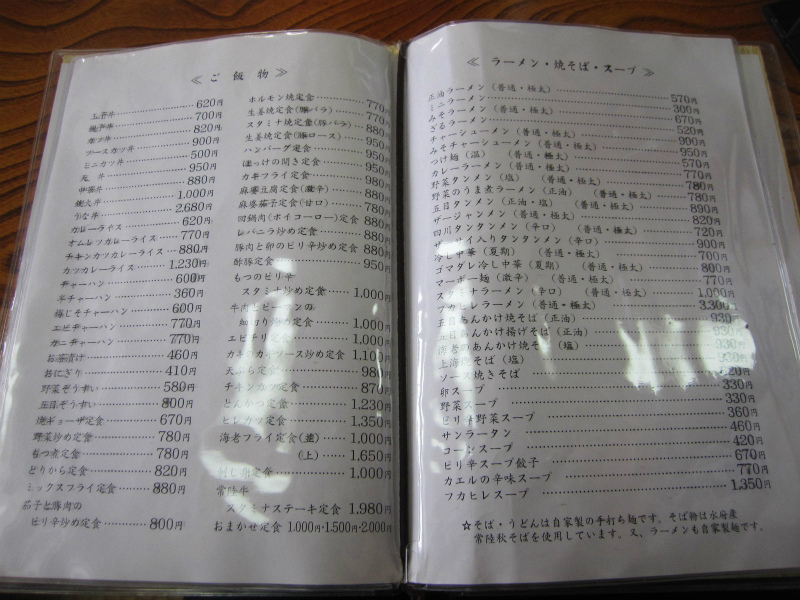 ≪ ご 飯 物 ≫
玉子丼 620円
親子丼 700円
カツ丼 820円
ソースカツ丼 900円
ミニカツ丼 500円
天 丼 950円
中華丼 880円
鉄火丼 1,000円
うな丼 2,680円
カレーライス 620円
オムレツカレーライス 770円
チキンカツカレーライス 880円
カツカレーライス 1,230円
チャーハン 600円
半チャーハン 360円
梅じそチャーハン 600円
エビチャーハン 770円
カニチャーハン 770円
お茶漬け 460円
おにぎり 410円
野菜ぞうすい 580円
五目ぞうすい 800円
焼ギョーザ定食 670円
野菜炒め定食 780円
もつ煮定食 780円
とりから定食 820円
ミックスフライ定食 880円
茄子と豚肉の
ピリ辛炒め定食 800円
ホルモン焼定食 770円
生姜焼定食(豚バラ) 770円
スタミナ焼定食(豚バラ) 880円
生姜焼定食(豚ロース) 950円
ハンバーグ定食 950円
ほっけの開き定食 950円
カキフライ定食 980円
麻婆豆腐定食(激辛) 880円
麻婆茄子定食(甘口) 780円
回鍋肉(ホイコーロー)定食 880円
レバニラ炒め定食 880円
豚肉と卵のピリ辛炒め定食 880円
酢豚定食 950円
もつのピリ辛
スタミナ炒め定食 1,000円
牛肉とピーマンの
細切り炒め定食 1,000円
エビチリ定食 1,000円
カキのカキソース炒め定食 1,100円
天ぷら定食 980円
チキンカツ定食 870円
とんかつ定食 1,230円
ヒレカツ定食 1,350円
海老フライ定食(並) 1,000円
(上) 1,650円
刺し身定食 1,000円
常陸牛
スタミナステーキ定食 1,980円
おまかせ定食 1,000円・1,500円・2,000円
≪ ラーメン・焼そば・スープ ≫
正油ラーメン(普通・極太) 570円
ミニラーメン 300円
みそラーメン(普通・極太) 670円
ざるラーメン 520円
チャーシューメン(普通・極太) 900円
みそチャーシューメン(普通・極太) 950円
つけ麺(温) (普通・極太) 570円
カレーラーメン(普通・極太) 770円
野菜タンメン(塩) (普通・極太) 780円
野菜のうま煮ラーメン(正油) (普通・極太) 780円
五目タンメン(正油・塩) (普通・極太) 890円
ザージャンメン(普通・極太) 820円
四川タンタンメン(辛口) (普通・極太) 720円
入りタンタンメン(辛口) 900円
冷し中華(夏期) (普通・極太) 700円
ゴマダレ冷し中華(夏期) (普通・極太) 800円
マーボー麺(激辛) (普通・極太) 770円
スタミナラーメン(辛口) (普通・極太) 1,000円
フカヒレラーメン(普通・極太) 1,330円
五目あんかけ焼そば(正油) 930円
五目あんかけ揚げそば(正油) 930円
海老のあんかけ焼そば(塩) 930円
上海焼きそば(塩) 930円
ソース焼きそば 620円
卵スープ 330円
野菜スープ 330円
ピリ辛野菜スープ 360円
サンラータン 460円
コーンスープ 420円
ピリ辛スープ餃子 670円
カエルの辛味スープ 770円
フカヒレスープ 1,350円
☆そば・うどんは自家製の手打ち麺です。そば粉は水府産
常陸秋そばを使用しています。又、ラーメンも自家製麺です。